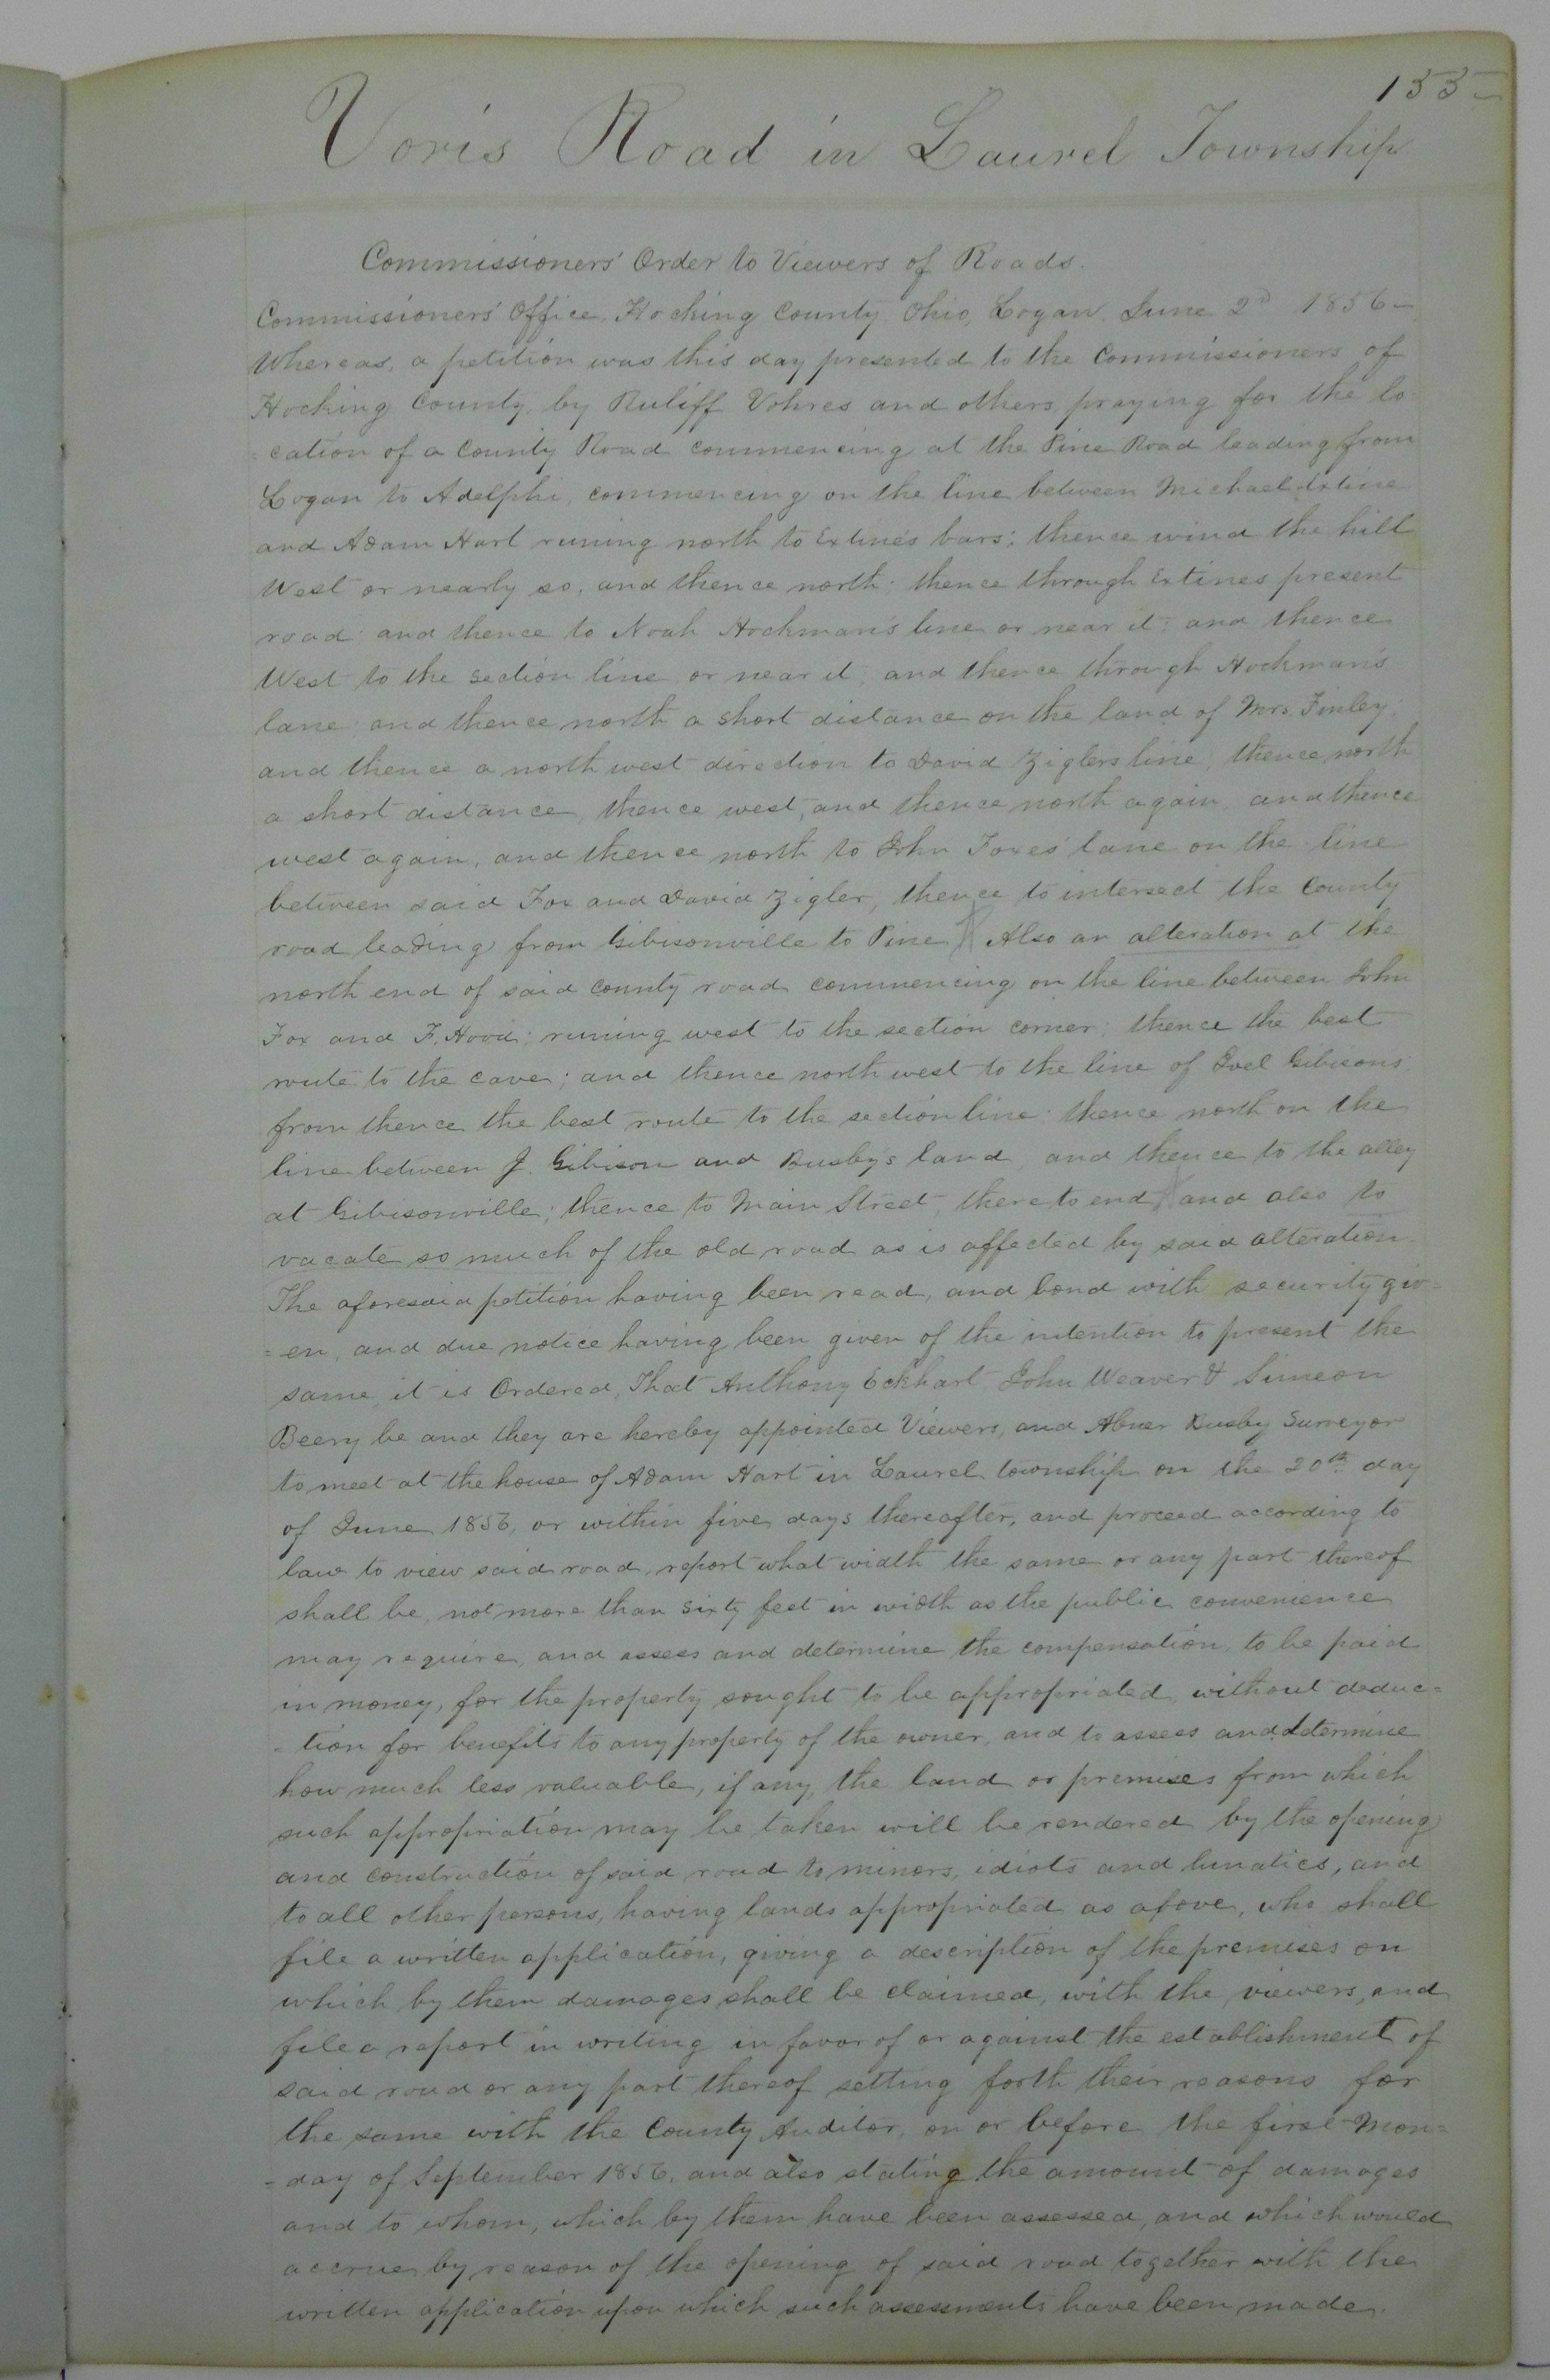 155
Voris Road in Laurel Township
Commissioners' Order to Viewers of Roads.
Commissioners' Office, Hocking County, Ohio, Logan, June 2d 1856 –
Whereas, a petition was this day presented to the Commissioners of
Hocking County, by Ruliff Vohres and others, praying for the lo-
=cation of a County Road commencing at the Pine Road leading from
Logan to Adelphi, commencing on the line between Michael Extine
and Adam Hart runing north to Extine's bars; thence wind the hill
West or nearly so, and thence north; thence through Extines present
road; and thence to Noah Hockman's line or near it; and thence
West to the section line or near it; and thence through Hockman's
lane; and thence north a short distance on the land of Mrs. Finley;
and thence a north west direction to David Ziglers line; thence north
a short distance, thence west, and thence north again, and thence
west again, and thence north to John Foxes' lane on the line
between said Fox and David Zigler, thence to intersect the County
road leading from Gibisonville to Pine. Also an alteration at the
north end of said County road commencing on the line between John
Fox and F. Hood; runing west to the section corner; thence the best
route to the cave; and thence north west to the line of Joel Gibisons;
from thence the best route to the section line; thence north on the
line between J. Gibison and Busby's land, and thence to the alley
at Gibisonville; thence to Main Street, there to end, and also to
vacate so much of the old road as is affected by said alteration.
The aforesaid petition having been read, and bond with security giv=
=en, and due notice having been given of the intention to present the
same, it is Ordered, That Anthony Eckhart, John Weaver & Simeon
Beery be and they are hereby appointed Viewers, and Abner Busby Surveyor
to meet at the house of Adam Hart in Laurel township on the 20th day
of June 1856, or within five days thereafter, and proceed according to
law to view said road, report what width the same or any part thereof
shall be, not more than sixty feet in width as the public convenience
may require, and assess and determine the compensation, to be paid
in money, for the property sought to be appropriated, without deduc=
=tion for benefits to any property of the owner, and to assess and determine
how much less valuable, if any, the land or premises from which
such appropriation may be taken will be rendered by the opening
and construction of said road to minors, idiots and lunatics, and
to all other persons, having lands appropriated as afove, who shall
file a written application, giving a description of the premises on
which by them damages shall be claimed, with the viewers, and
file a report in writing in favor of or against the establishment of
said road or any part thereof setting forth their reasons for
the same with the County Auditor, on or before the first Mon=
=day of September 1856, and also stating the amount of damages
and to whom, which by them have been assessed, and which would
accrue by reason of the opening of said road together with the
written application upon which such assessments have been made.